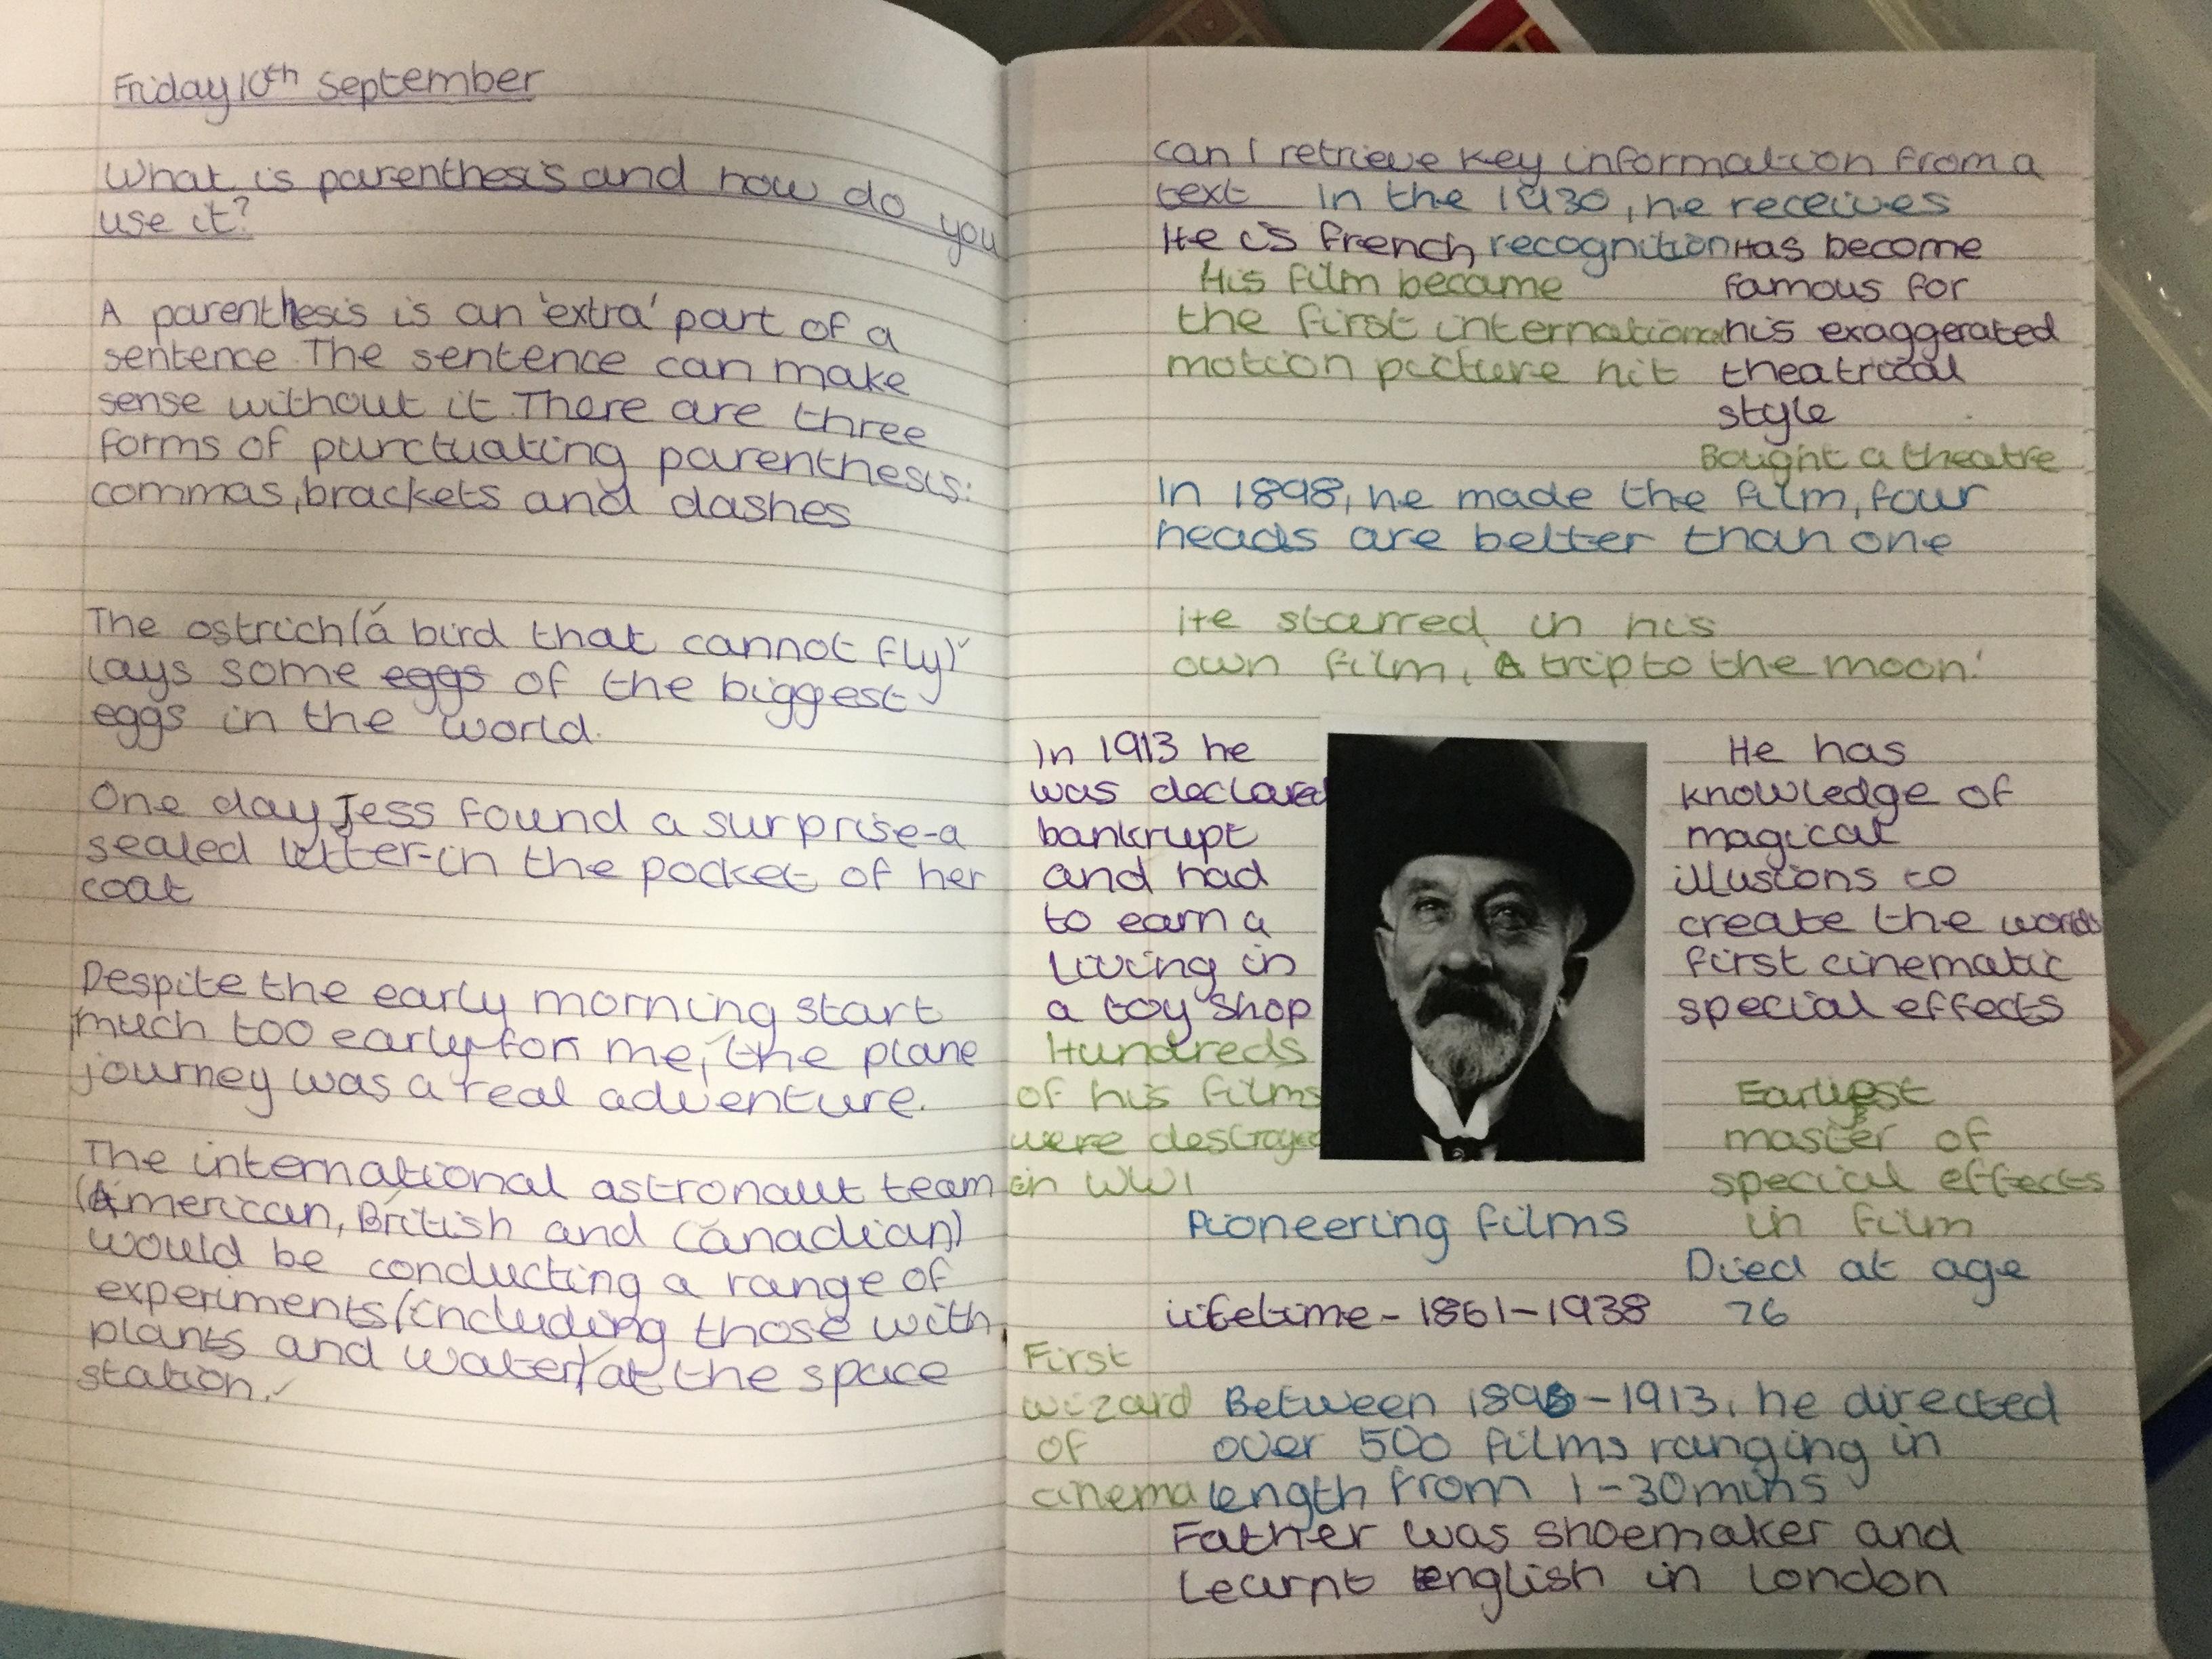 Friday 10th September
What is parenthesis and how do you
use it?
A parenthesis is an 'extra' part of a
sentence. The sentence can make
sense without it. There are three
forms of punctuating parenthesis:
commas, brackets and dashes
The ostrich (a bird that cannot fly)
lays some eggs of the biggest
eggs in the world.
One day Jess found a surprise-a
sealed letter-in the pocket of her
coat
Despite the early morning start
much too early for me, the plane
journey was a real adventure.
The international astronaut team
(American, British and Canadian)
would be conducting a range of
experiments (including those with
plants and water) at the space
station.
can I retrieve key information from a
text
In the 1930, he receives
recognition
He is french
Has become
famous for
his exaggerated
theatrical
style
His film became
the first international
motion picture hit
Bought a theatre
In 1898, he made the film, four
heads are better than one
He starred in his
own film, A trip to the moon!
In 1913 he
was declared
bankrupt
and had
to earn a
living in
a toy shop
Hundreds
of his films
were destroyed
in WW1
He has
knowledge of
magical
illusions to
create the worlds
first cinematic
special effects
Earliest
master of
special effects
in film
Pioneering films
Died at age
76
lifetime - 1861-1938
First
wizard
of
cinema
Between 1896-1913, he directed
over 500 films ranging in
length from 1-30mins
Father was shoemaker and
Learnt English in London